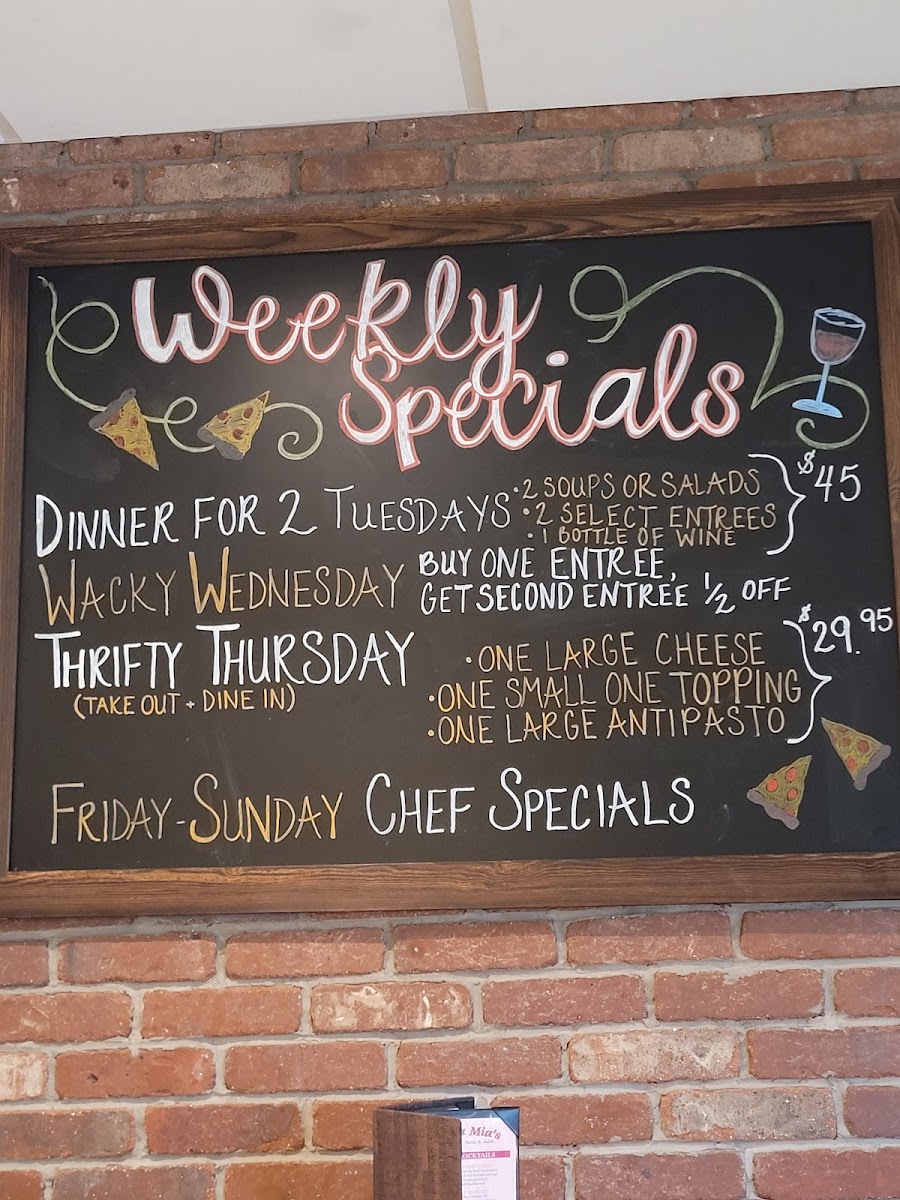 Weekly
Specials
DINNER FOR 2 TUESDAYS
• 2 SOUPS OR SALADS
• 2 SELECT ENTREES
• 1 BOTTLE OF WINE
$45
WACKY WEDNESDAY
BUY ONE ENTREE,
GET SECOND ENTREE 1/2 OFF
THRIFTY THURSDAY
(TAKE OUT + DINE IN)
• ONE LARGE CHEESE
• ONE SMALL ONE TOPPING
• ONE LARGE ANTIPASTO
$29.95
FRIDAY - SUNDAY CHEF SPECIALS
Mia's